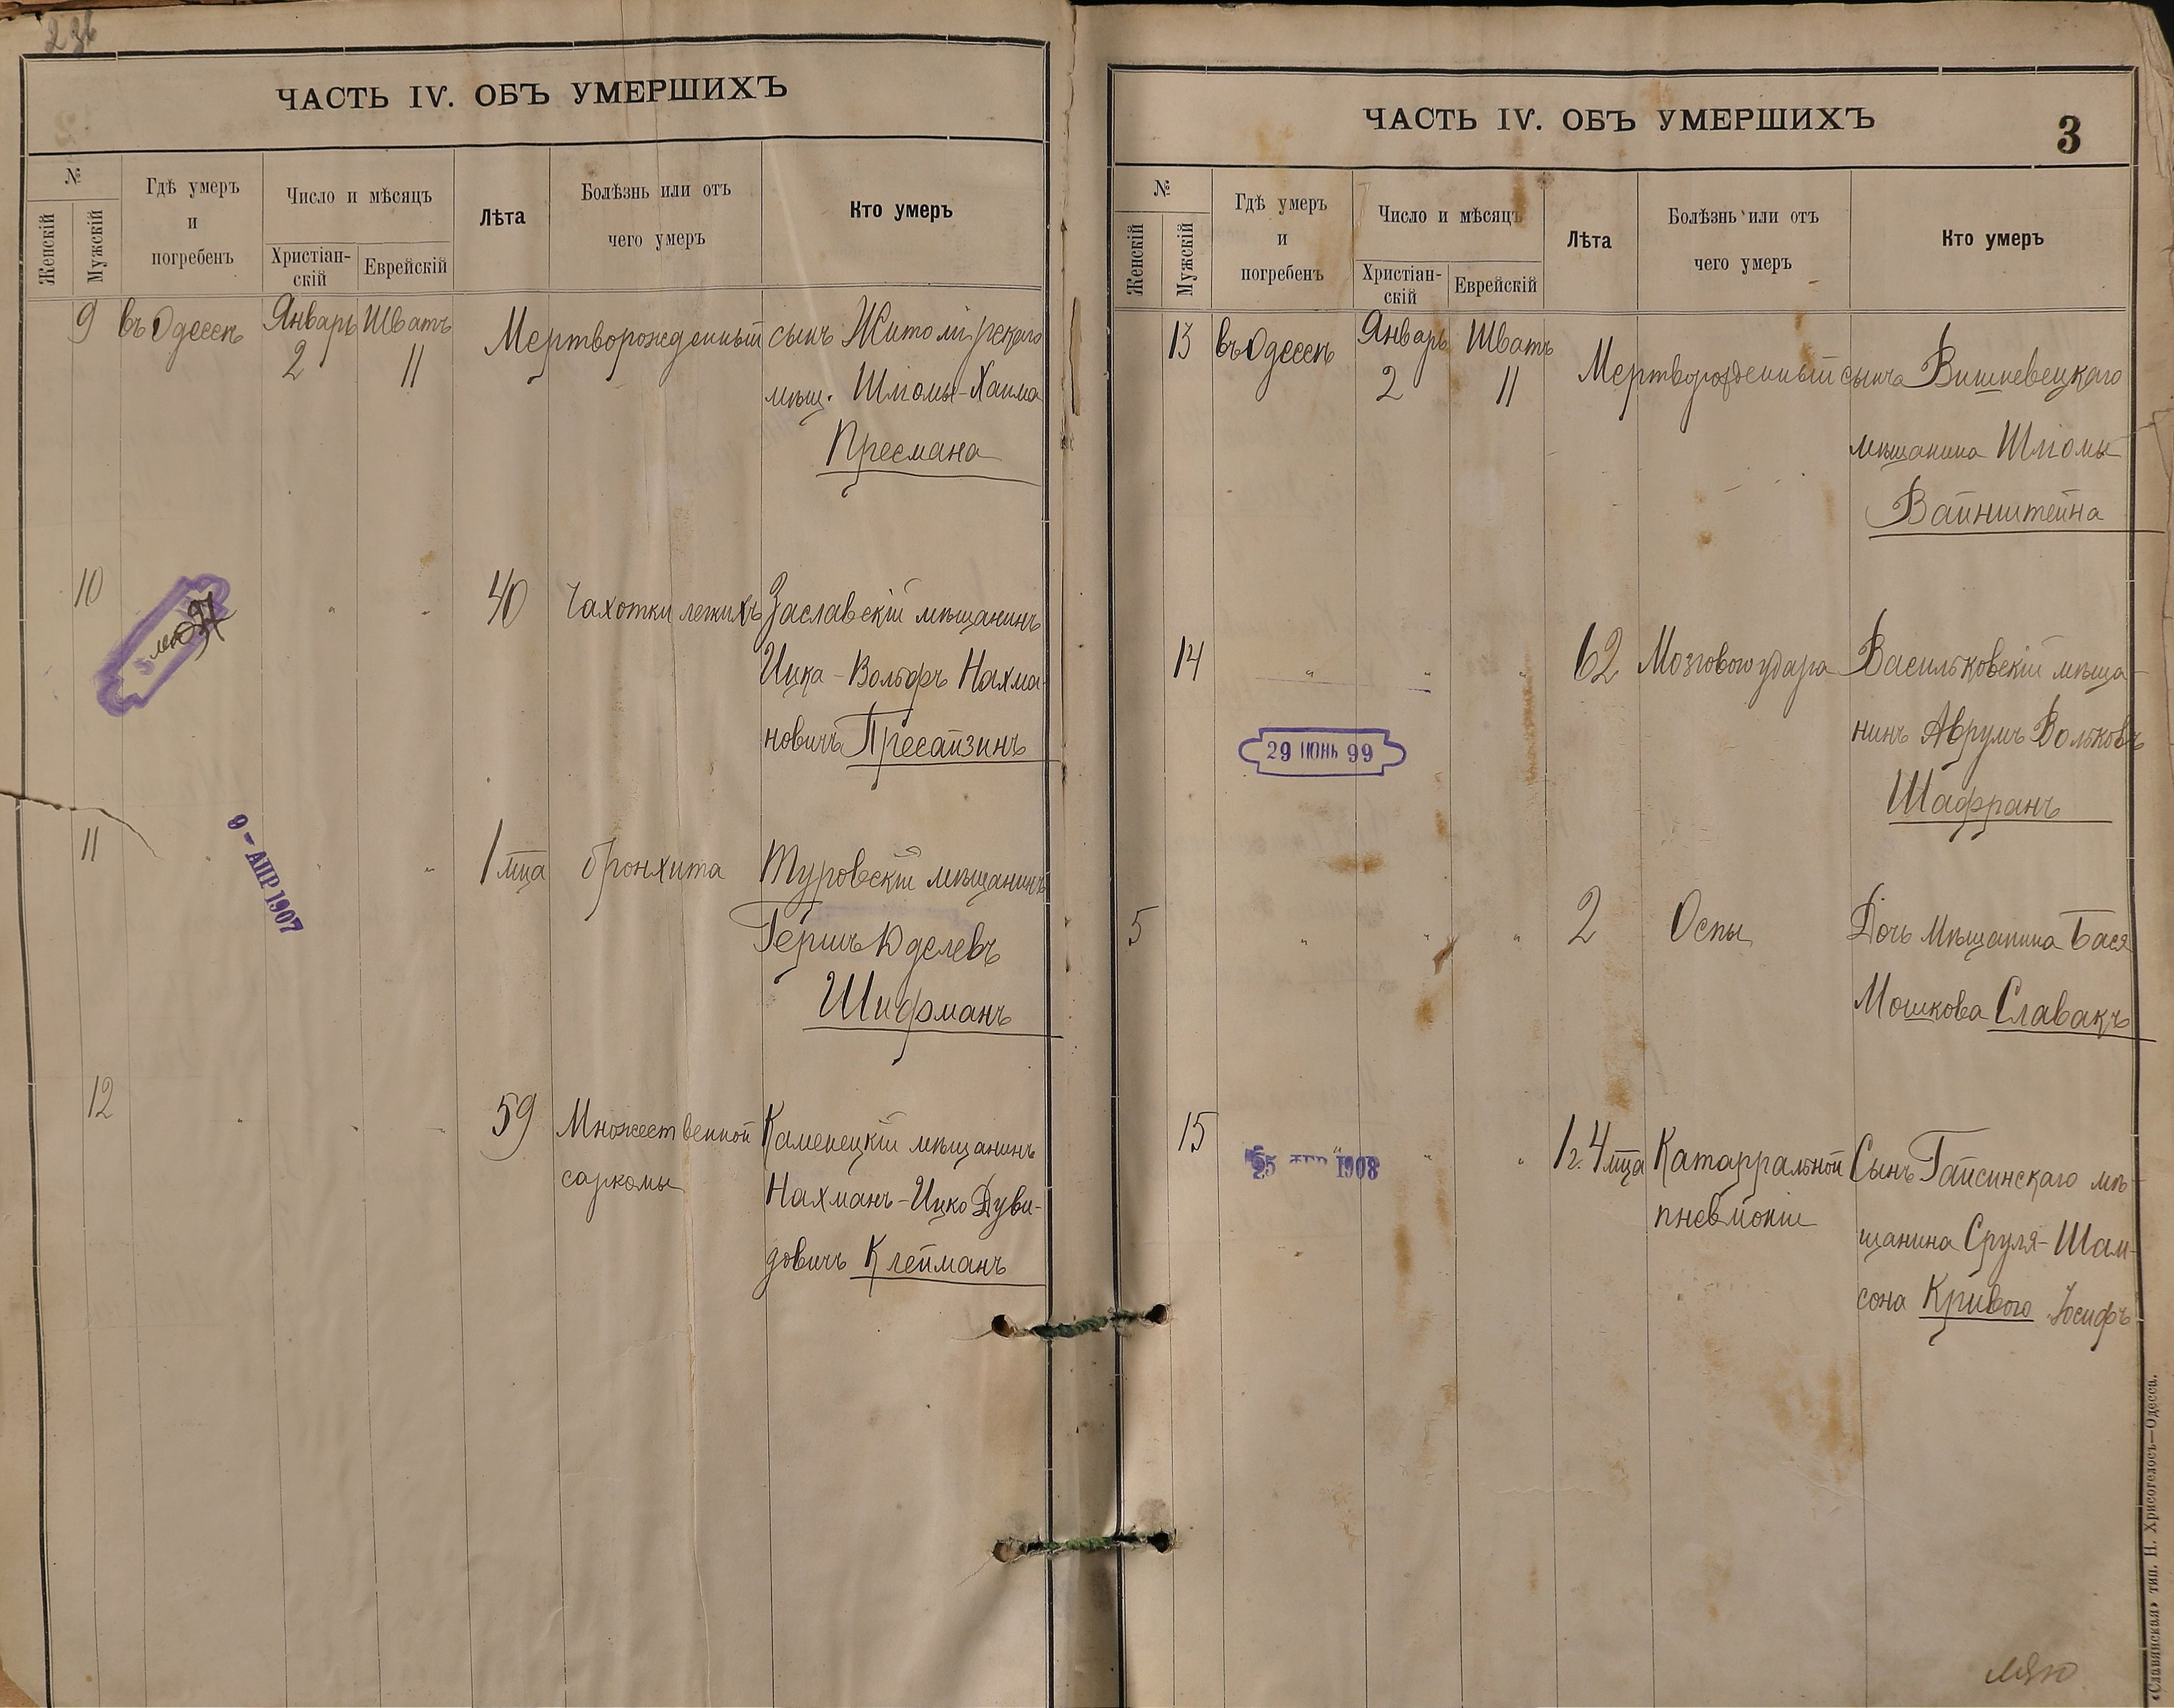 236
ЧАСТЬ IV. ОБЪ УМЕРШИХЪ
№
Женскій
Мужскій
Гдѣ умеръ
и
погребенъ
Число и мѣсяцъ
Христіан-
скій
Еврейскій
Лѣта
Болѣзнь или отъ
чего умеръ
Кто умеръ
9 въ Одессѣ Январь Шватъ Мертворожденный сынъ Житомірскаго
2 11 мѣщ. Шліомы-Хаима
Пресмана
10 " " 40 Чахотки легкихъ Заславскій мѣщанинъ
Ицка-Вольфъ Нахма-
новичъ Пресайзинъ
97
11 " " 1 мца бронхита Туровскій мѣщанинъ
Гершъ Юделевъ
Шифманъ
9 - АПР 1907
12 " " " 59 Множественной Каменецкій мѣщанинъ
саркомы Нахманъ-Ицко Дуви-
довичъ Клейманъ
ЧАСТЬ IV. ОБЪ УМЕРШИХЪ
3
№
Женскій
Мужскій
Гдѣ умеръ
и
погребенъ
Число и мѣсяцъ
Христіан-
скій
Еврейскій
Лѣта
Болѣзнь или отъ
чего умеръ
Кто умеръ
13 въ Одессѣ Январь Шватъ Мертворожденный сынъ Вишневецкаго
2 11 мѣщанина Шліомы
Вайнштейна
14 " " " 62 Мозгового удара Васильковскій мѣща-
нинъ Аврумъ Вольковъ
Шафранъ
29 ІЮНЬ 99
5 " " " 2 Оспы Дочь мѣщанина Бася
Мошкова Славакъ
15 " " " 1 г. 4 мца Катарральной Сынъ Гайсинскаго мѣ-
пневмоніи щанина Сруля-Шам-
сона Кривого Іосифъ
25 1908
«Славянская» тип. Н. Хрисогелосъ—Одесса.